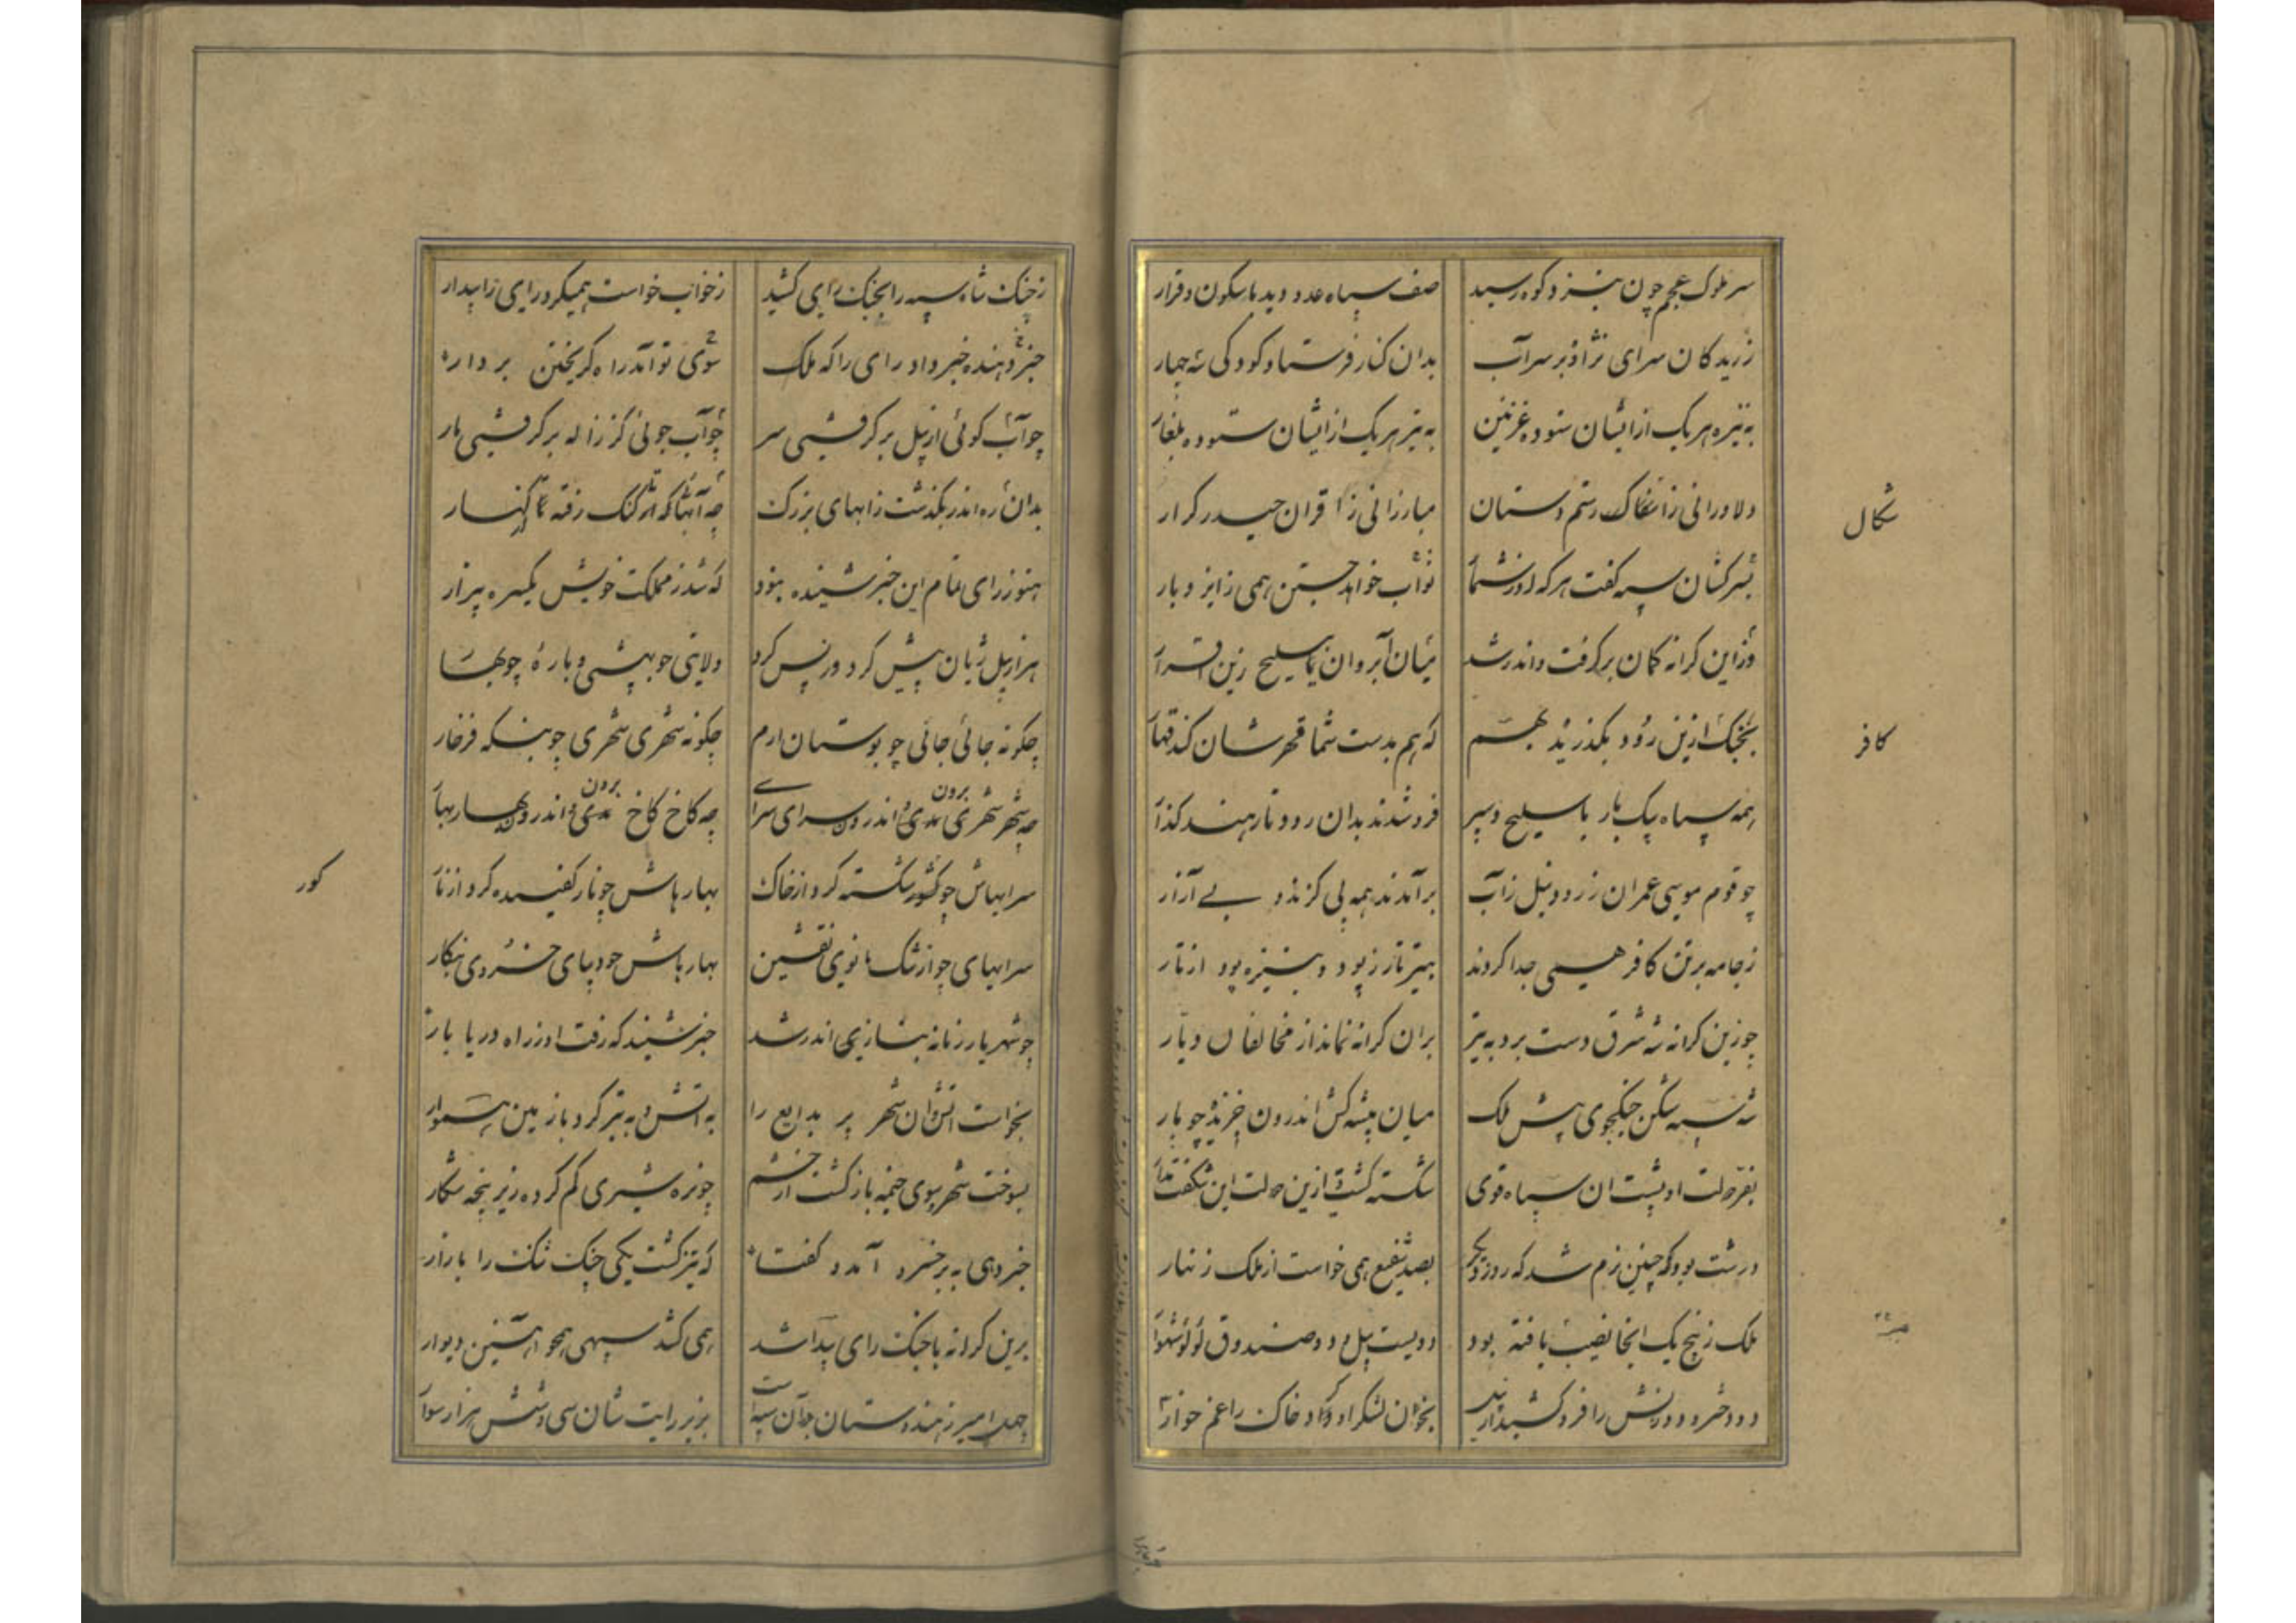 سر ملوک عجم چون بنزد کوه رسید
صف سپاه عدو دید با سکون و قرار
ز ریدکان سرای نژاد بر سر آب
بدان کنار فرستاد کودکی سه چهار
به نیزه هر یک ازایشان ستوده غزنین
به تیر هر یک ازایشان ستوده بلغار
دلاورانی ز رستم دستان
مبارزانی ز اقران حیدر کرار
بسرکشان سپه کفت هر که از شما
ثواب خواهد جستن همی ز ایزد بار
وزاین کرانه کمان برکرفت و اندر شد
میان آب روان با سلیح زین افزار
بجنک ازین رود بکذرید بهم
که هم بدست شما قهرشان کند قهار
همه سپاه بیک بار با سلیح و سپر
فرو شدند بدان رود نارهند کذار
چو قوم موسی عمران ز رود نیل ز آب
برآمدند همه بی کزند و بے آزار
ز جامه برتن کافر همی جدا کردند
بتیر تار ز پود و بنیزه پود از تار
چو زین کرانه شه شرق دست برد به تیر
بران کرانه نماند از مخالفان دیار
شه سپه شکن جنکجوی پیش ملک
میان بیشه کش اندرون خزیده چو مار
بفر دولت او پشت آن سپاه قوی
شکسته کشت ازین دولت این شکفت مدار
درست بود که چنین رزم شد که روز دیکر
بصد شفیع همی خواست از ملک زنهار
ملک ز پنج یک آنجا نصیب یافته بود
دویست پیل و دو صندوق لؤلؤ شهوار
بخون لشکر او داد خاک را غم خوار
شکال
کافر
ز جنک شاه سپه را بجنک رای کشید
ز خواب خواست همیکرد رای را بیدار
خبر دهنده خبر داد رای را که ملک
سوی تو آمد راه کریختن بردار
چو آب کوئی از پیل برکرفتی سر
چو آب جوئی کز زاله برکرفتی بار
بدان ره اندر بکذشت ز آبهای بزرک
چه آبهائی که از کنک رفته تا کهسار
هنوز رای تمام این خبر شنیده نبود
که شد ز مملکت خویش یکسره بیزار
هزار پیل ژیان پیش کرد و ز پس کرد
ولایتی چو بهشتی و باره چو بهار
چکونه جائی جائی چو بوستان ارم
چکونه شهری شهری چو بتکه فرخار
چه شهر شهری برون اندرون سرای سرای
چه کاخ کاخ برون اندرون بهار بهار
سرایهاش چو شکسته کرد از خاک
بهارهاش چو نار کفیده کرد از نار
سرایهای چو ارتنک مانوی نقشین
بهارهاش چو دیبای خسروی بنکار
چو شهریار زمانه بشاری اندر شد
خبر شنید که رفت او ز راه دریا بار
بخواست آتش آن شهر پر بدایع را
به آتش و به تبر کرد با زمین هموار
بسوخت شهر بسوی خیمه باز کشت از خشم
چو نره شیری کم کرده زیر پنجه شکار
خبردهی به بر خسرو آمد و کفتا
که تیز کشت یکی جنک تنک را بازار
برین کرانه با جنک رای پیدا شد
همی کشد سپهی همچو آهنین دیوار
چهل امیر ز هندوستان در آن سپاست
بزیر رایت شان سی و شش هزار سوار
کور